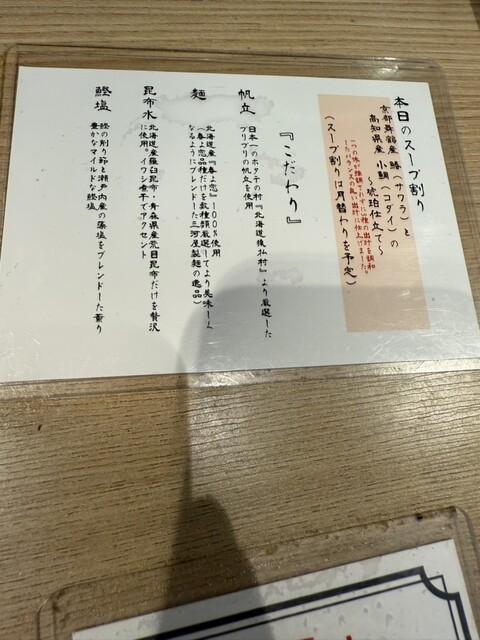 本日のスープ割り
京都舞鶴産 鰆(サワラ)と
高知県産 小鯛(コダイ)の
〜琥珀仕立て〜
(スープ割りは月替わりを予定)
『こだわり』
帆立
日本一のホタテの村『北海道猿払村』より厳選した
プリプリの帆立を使用
麺
北海道産『春よ恋』100%使用
(春よ恋品種だけを数種類厳選してより美味しく
なるようにブレンドした三河屋製麺の逸品)
昆布水
北海道産羅臼昆布・青森県産荒目昆布だけを贅沢
に使用。イワシ煮干でアクセント
鰹塩
鰹の削り節と瀬戸内産の藻塩をブレンドした香り
豊かなマイルドな鰹塩